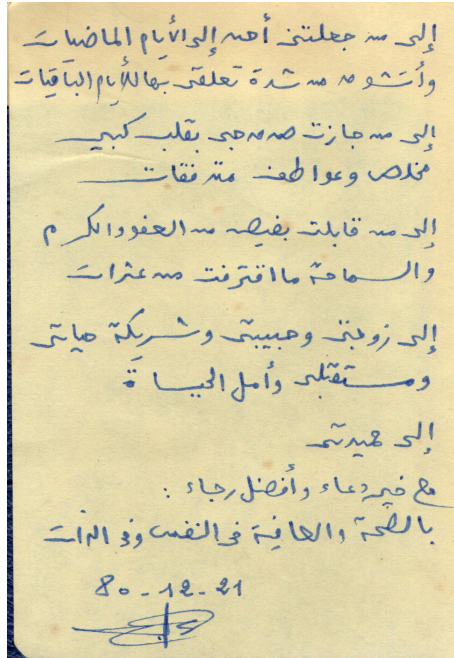 إلى من جعلتني أحن إلى الأيام الماضيات
وأتشوق من شدة تعلقي بها للأيام الباقيات
إلى من جازت حبي بقلب كبير
مخلص وعواطف متدفقات
إلى من قابلت بفيض من العفو والكرم
والسماحة ما اقترفت من عثرات
إلى زوجتي وحبيبتي وشريكة حياتي
ومستقبلي وأمل الحياة
إلى حميدتي
مع خير دعاء وأفضل رجاء :
بالصحة والعافية في النفس وفي الذات
80-12-21